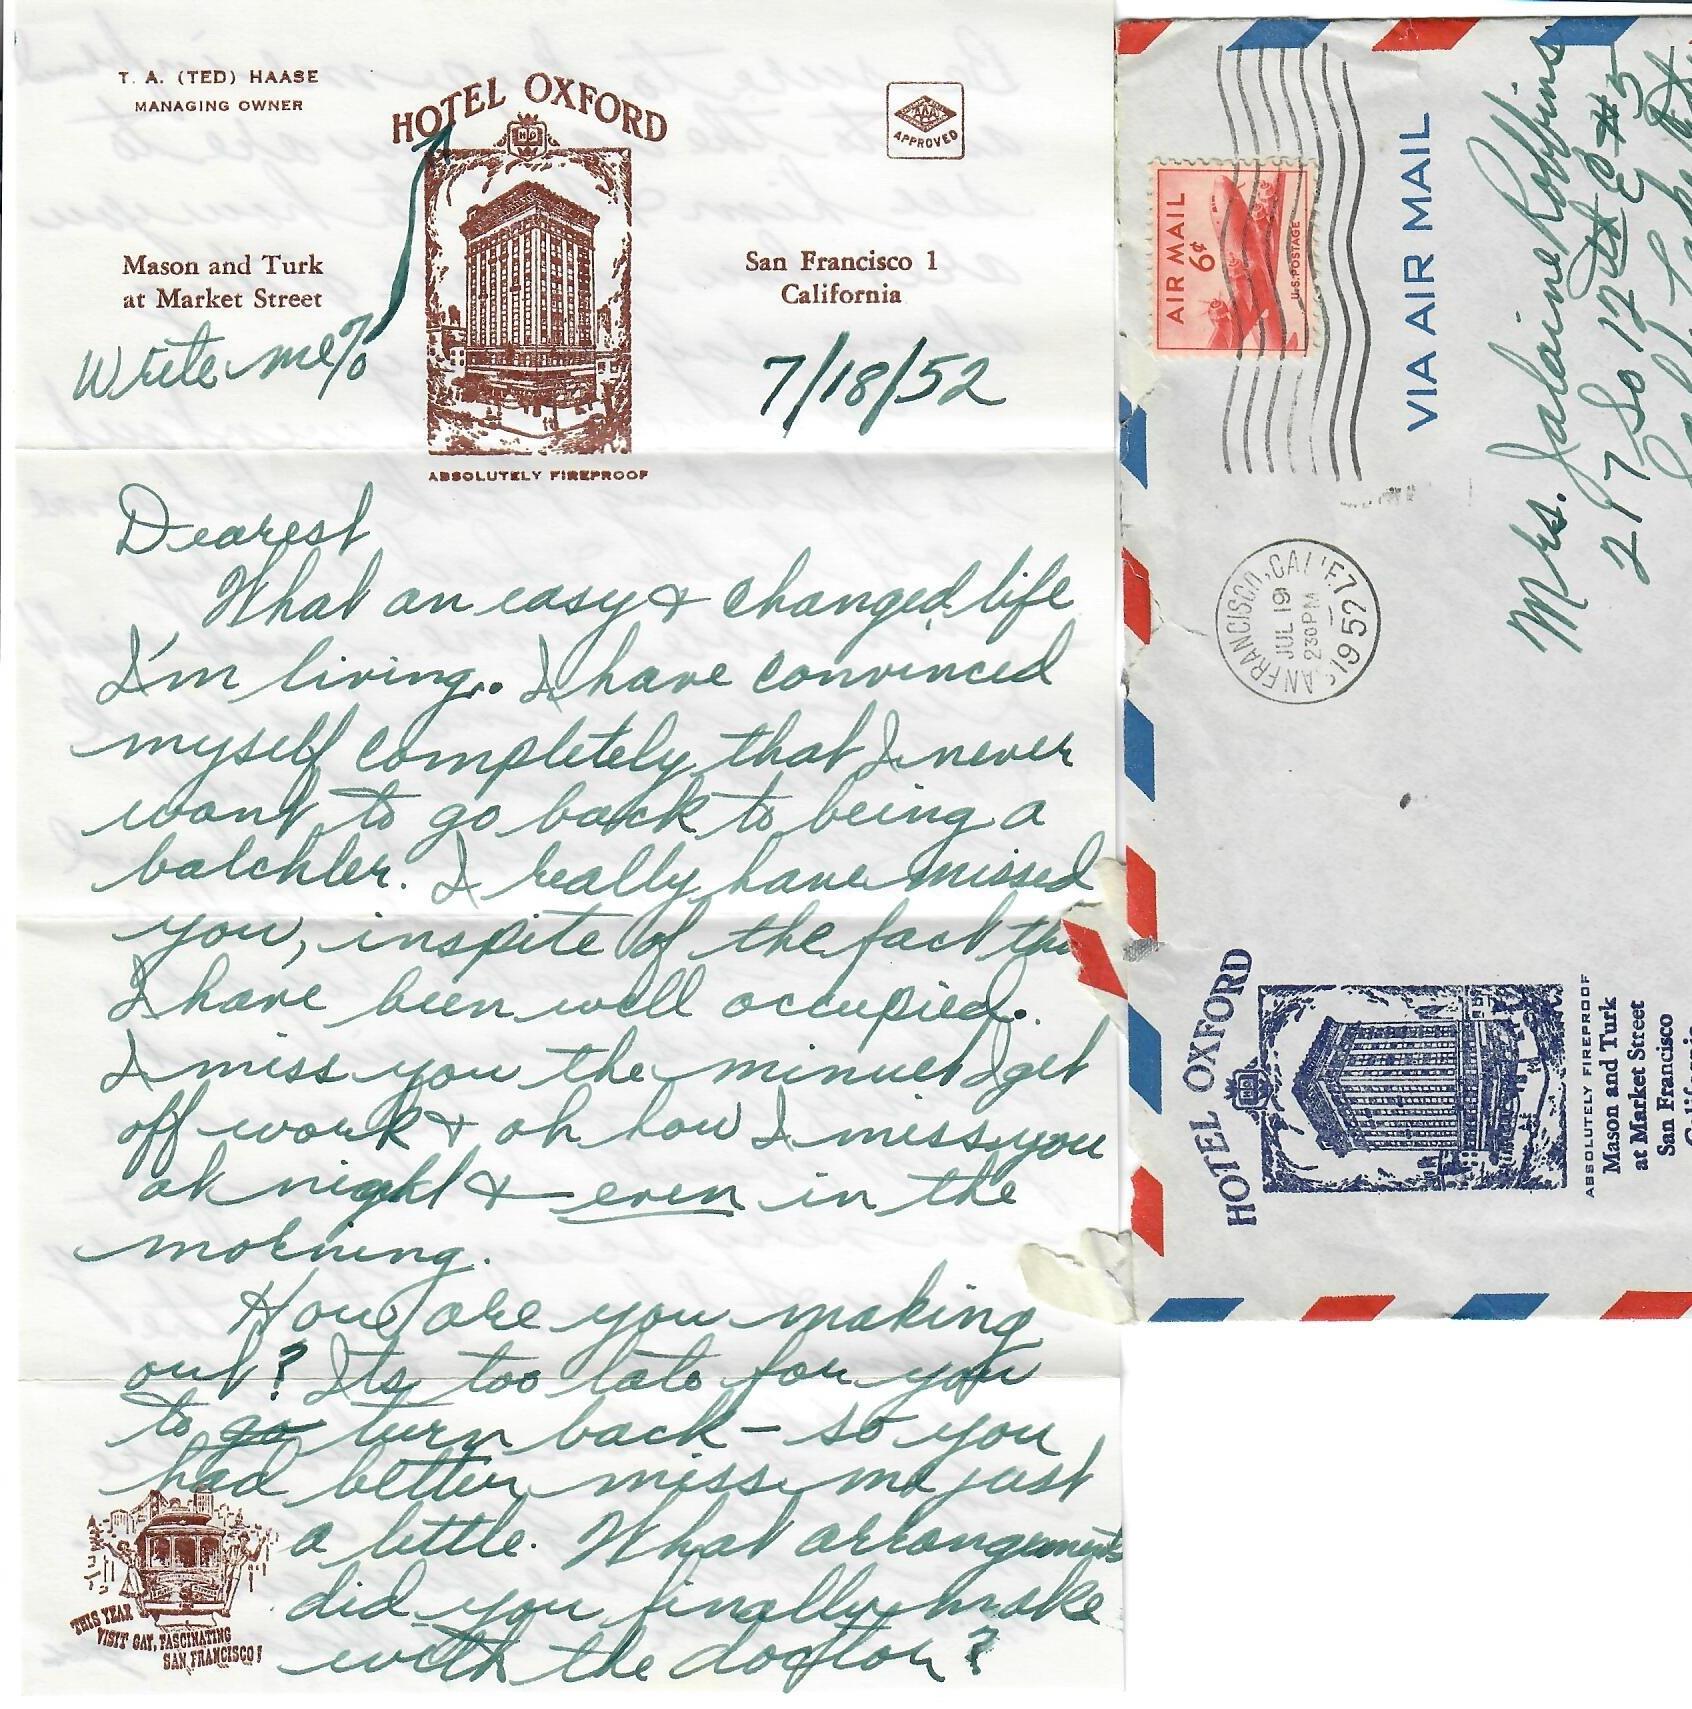 T. A. (TED) HAASE
MANAGING OWNER
HOTEL OXFORD
HO
AAA
APPROVED
Mason and Turk
at Market Street
San Francisco 1
California
Write me %
7/18/52
ABSOLUTELY FIREPROOF
Dearest
What an easy & changed life
I'm living. I have convinced
myself completely that I never
want to go back to being a
batchler. I really have missed
you, inspite of the fact tha
I have been well occupied.
I miss you the minuet I get
off work & oh how I miss you
at night & even in the
morning.
How are you making
out? Its too late for you
to go turn back - so you
had better miss me just
a little. What arrangements
did you finally make
with the doctor?
THIS YEAR
VISIT GAY, FASCINATING
SAN FRANCISCO!
AIR MAIL
6¢
U.S. POSTAGE
VIA AIR MAIL
SAN FRANCISCO, CALIF.
JUL 19
230 PM
1952
Mrs. Jalaine Robbins
217 So 12th E #5
Salt Lake City
HOTEL OXFORD
HO
ABSOLUTELY FIREPROOF
Mason and Turk
at Market Street
San Francisco
California